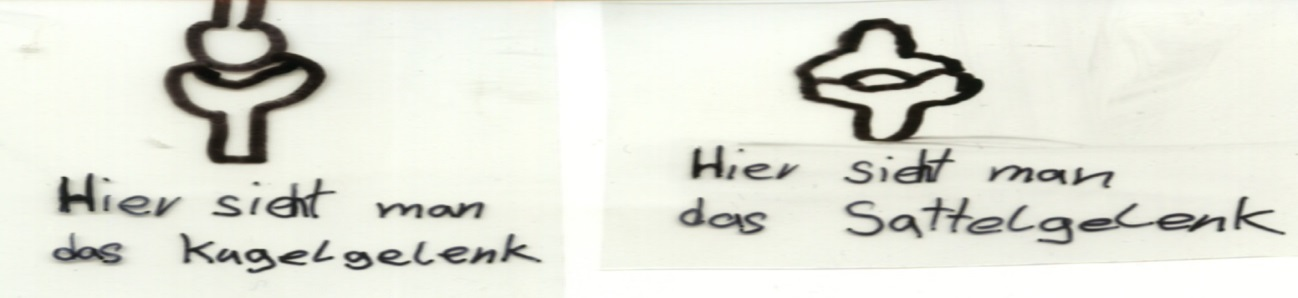 Hier sieht man
das Kugelgelenk
Hier sieht man
das Sattelgelenk